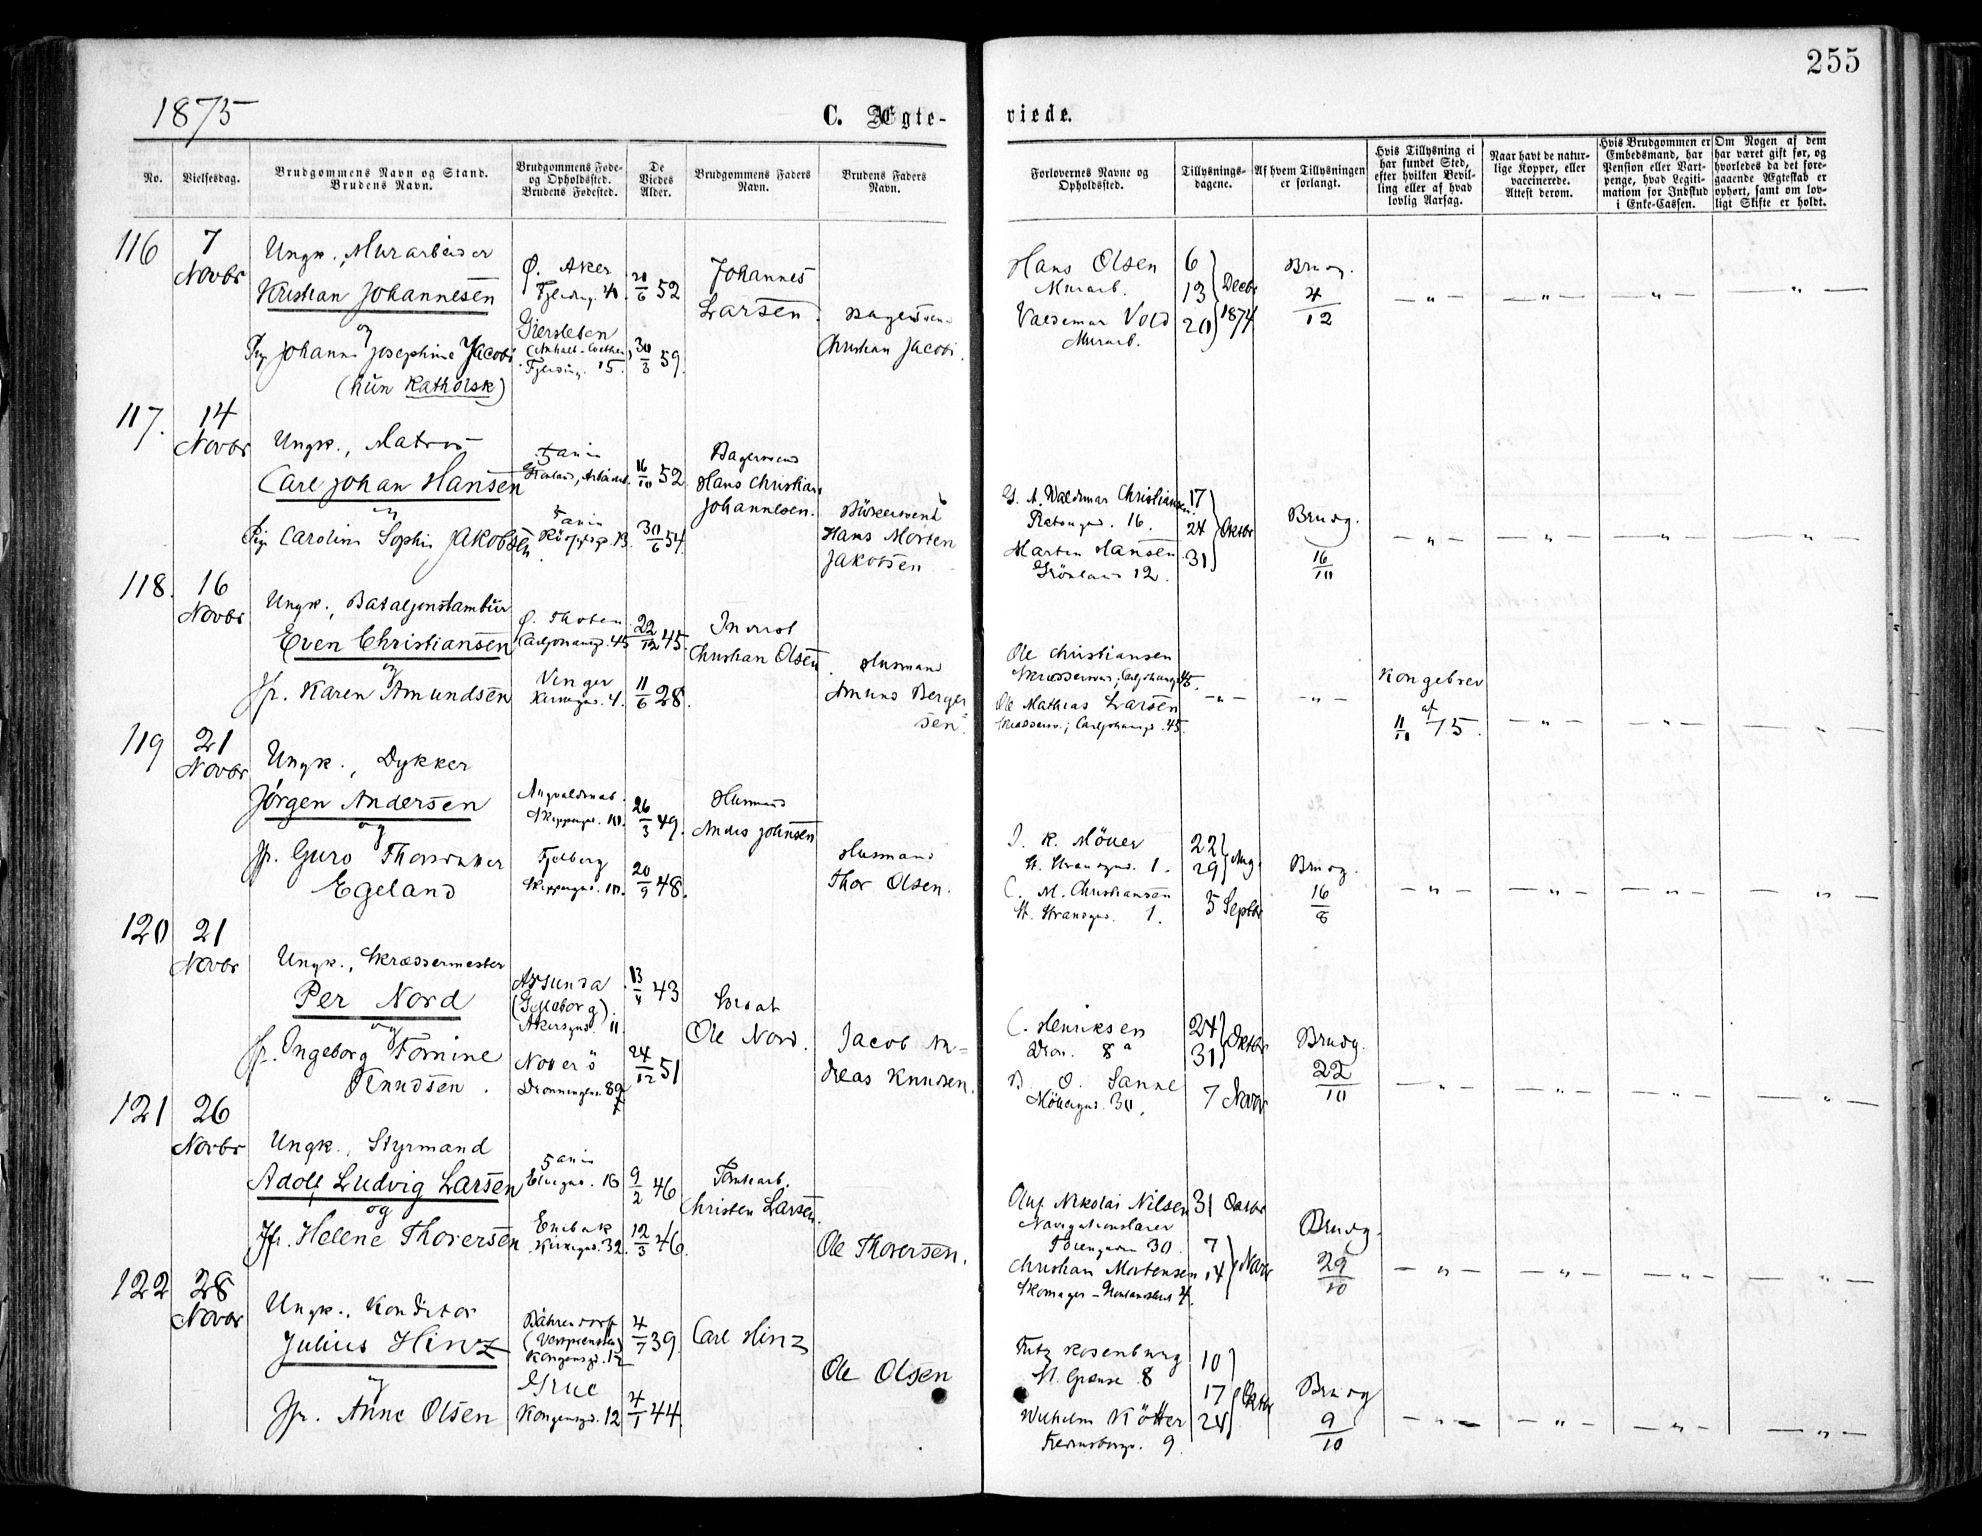 255
1875
C. Ægte-
viede.
No.
Vielsesdag.
Brudgommens Navn og Stand.
Brudens Navn.
Brudgommens Føde-
og Opholdssted.
Brudens Fødested.
De
Viedes
Alder.
Brudgommens Faders
Navn.
Brudens Faders
Navn.
Forlovernes Navne og
Opholdssted.
Tillysnings-
dagene.
Af hvem Tillysningen
er forlangt.
Hvis Tillysning ei
har fundet Sted,
efter hvilken Bevil-
ling eller af hvad
lovlig Aarsag.
Naar havt de natur-
lige Kopper, eller
vaccinerede.
Attest derom.
Hvis Brudgommen er
Embedsmand, har
Pension eller Vart-
penge, hvad Legiti-
mation for Indskud
i Enke-Cassen.
Om Nogen af dem
har været gift før, og
hvorledes da det fore-
gaaende Ægteskab er
ophørt, samt om lov-
ligt Skifte er holdt.
116
7
Novbr
Ungk., Murarbeider
Kristian Johannesen
og
Pig. Johanne Josephine Jacobi
(hun Katholsk)
Ø. Aker
Fjerding. 40.
Giersleben
(Anhalt-Coethen)
Fjerding. 15.
20/6 52
30/3 59.
Johannes
Larsen.
Christian Jacobi.
Hans Olsen
Murarb.
Valdemar Vold
Murarb.
6
13
20
Decbr
1874
Brudg.
4/12
117.
14
Novbr
Ungk., Matros
Carl Johan Hansen
og
Pig. Caroline Sophie Jakobsen
16/10 52
30/6 54.
Bagersvend
Hans Christian
Johannesen.
Hans Morten
Jakobsen
G. A. Waldemar Christiansen.
16.
Martin Hansen
Grönland 12.
17
24
31
Oktbr
Brudg.
16/10
118.
16
Novbr
Ungk., Bataljonstambur
Even Christiansen
og
Jfr. Karen Amundsen
Ø. Thoten
Carljohansgd. 45
Vinger
Kirkegd. 4.
22/12 45.
11/6 28.
Inderst
Christian Olsen
Husmand
Amund Berger
sen
Ole Christiansen
Skræddersv.; Carljohansgd 45.
Ole Mathias Larsen
Skræddersv.; Carljohansgd. 45.
Kongebrev
af
11/11 75.
119
21
Novbr
Ungk., Dykker
Jörgen Andersen
og
Jfr. Guro Thorsdatter
Egeland
Skippergd. 10.
Fjelberg
Skippergd. 10.
26/3 49.
20/9 48.
Husmand
Anders Johnsen
Husmand
Thor Olsen.
J. K. Möller
St. Strandgd. 1.
C. M. Christiansen
St. Strandgd. 1.
22
29
Aug.
5 Septbr
Brudg.
16/8
120
21
Novbr
Ungk., Skræddermester
Per Nord
og
Jfr. Ingeborg Tomine
Knudsen.
Årsunda
(Gefleborg).
Akersgd. 11.
Nøtterö
Dronningens. 8
43
24/12 51
Soldat
Ole Nord.
Jacob An=
dreas Knudsen.
C. Henriksen
Dron. 8 a
B. O. Sanne
Möllergd. 30.
24
31
Oktbr
7 Novbr
Brudg.
22/10
121
26
Novbr
Ungk., Styrmand
Adolf Ludvig Larsen
og
Jfr. Helene Thoresen
Elvegad. 16
Enebak
Kirkegd. 32.
9/2 46
12/3 46.
Tomtearb.
Christen Larsen.
Ole Thoresen.
Oluf Nikolai Nilsen
Navigationslærer
30.
Christian Mortensen
Skomager - Grönlandsleret 4.
31 Octbr
7
14
Novbr
Brudg.
29/10
122
28
Novbr
Ungk., Konditor
Julius Hinz
og
Jfr. Anne Olsen
Bährendorff
(Vestpreussen)
Kongensgd. 12
Grue
Kongensgd. 12
4/7 39
4/1 44.
Carl Hinz
Ole Olsen
Fritz Rosenburg
St. Grænse. 8
Wilhelm Kötter
9.
10
17
24
Oktbr
Brudg
9/10